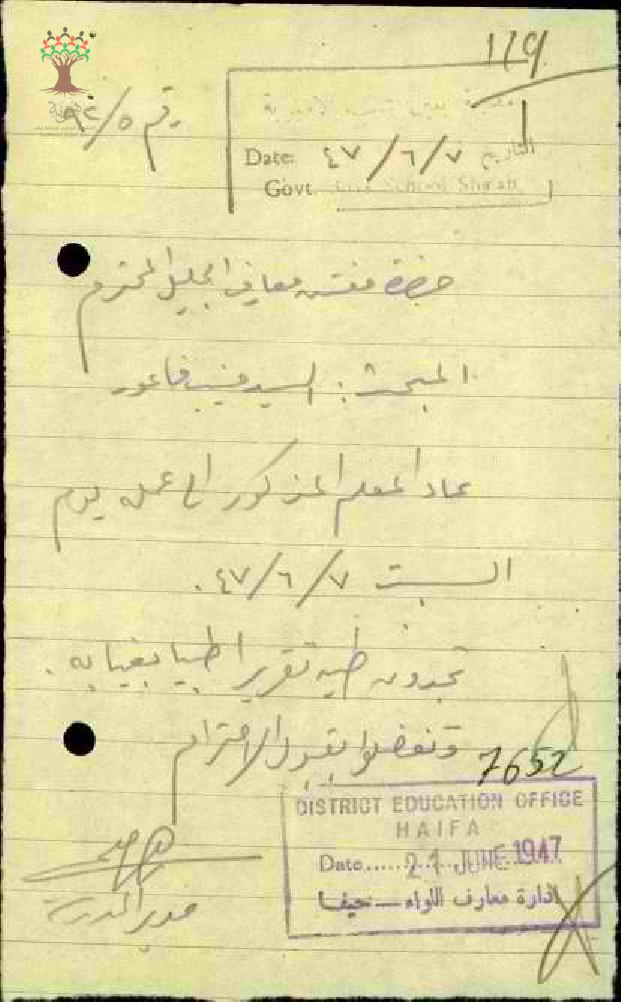 119
رقم ٩٤/٥
التاريخ ٤٧/٦/٧ Date:
Govt. School
حضرة مفتش معارف الجليل المحترم
المبحث: السيد منيب فاعور
عاد المعلم المذكور الى عمله يوم
السبت ٤٧/٦/٧.
تجدون طيه تقريرا طبيا بغيابه.
وتفضلوا بقبول الاحترام
7652
DISTRICT EDUCATION OFFICE
HAIFA
Date..... 21 JUNE 1947
ادارة معارف اللواء — حيفا
مدير المدرسة